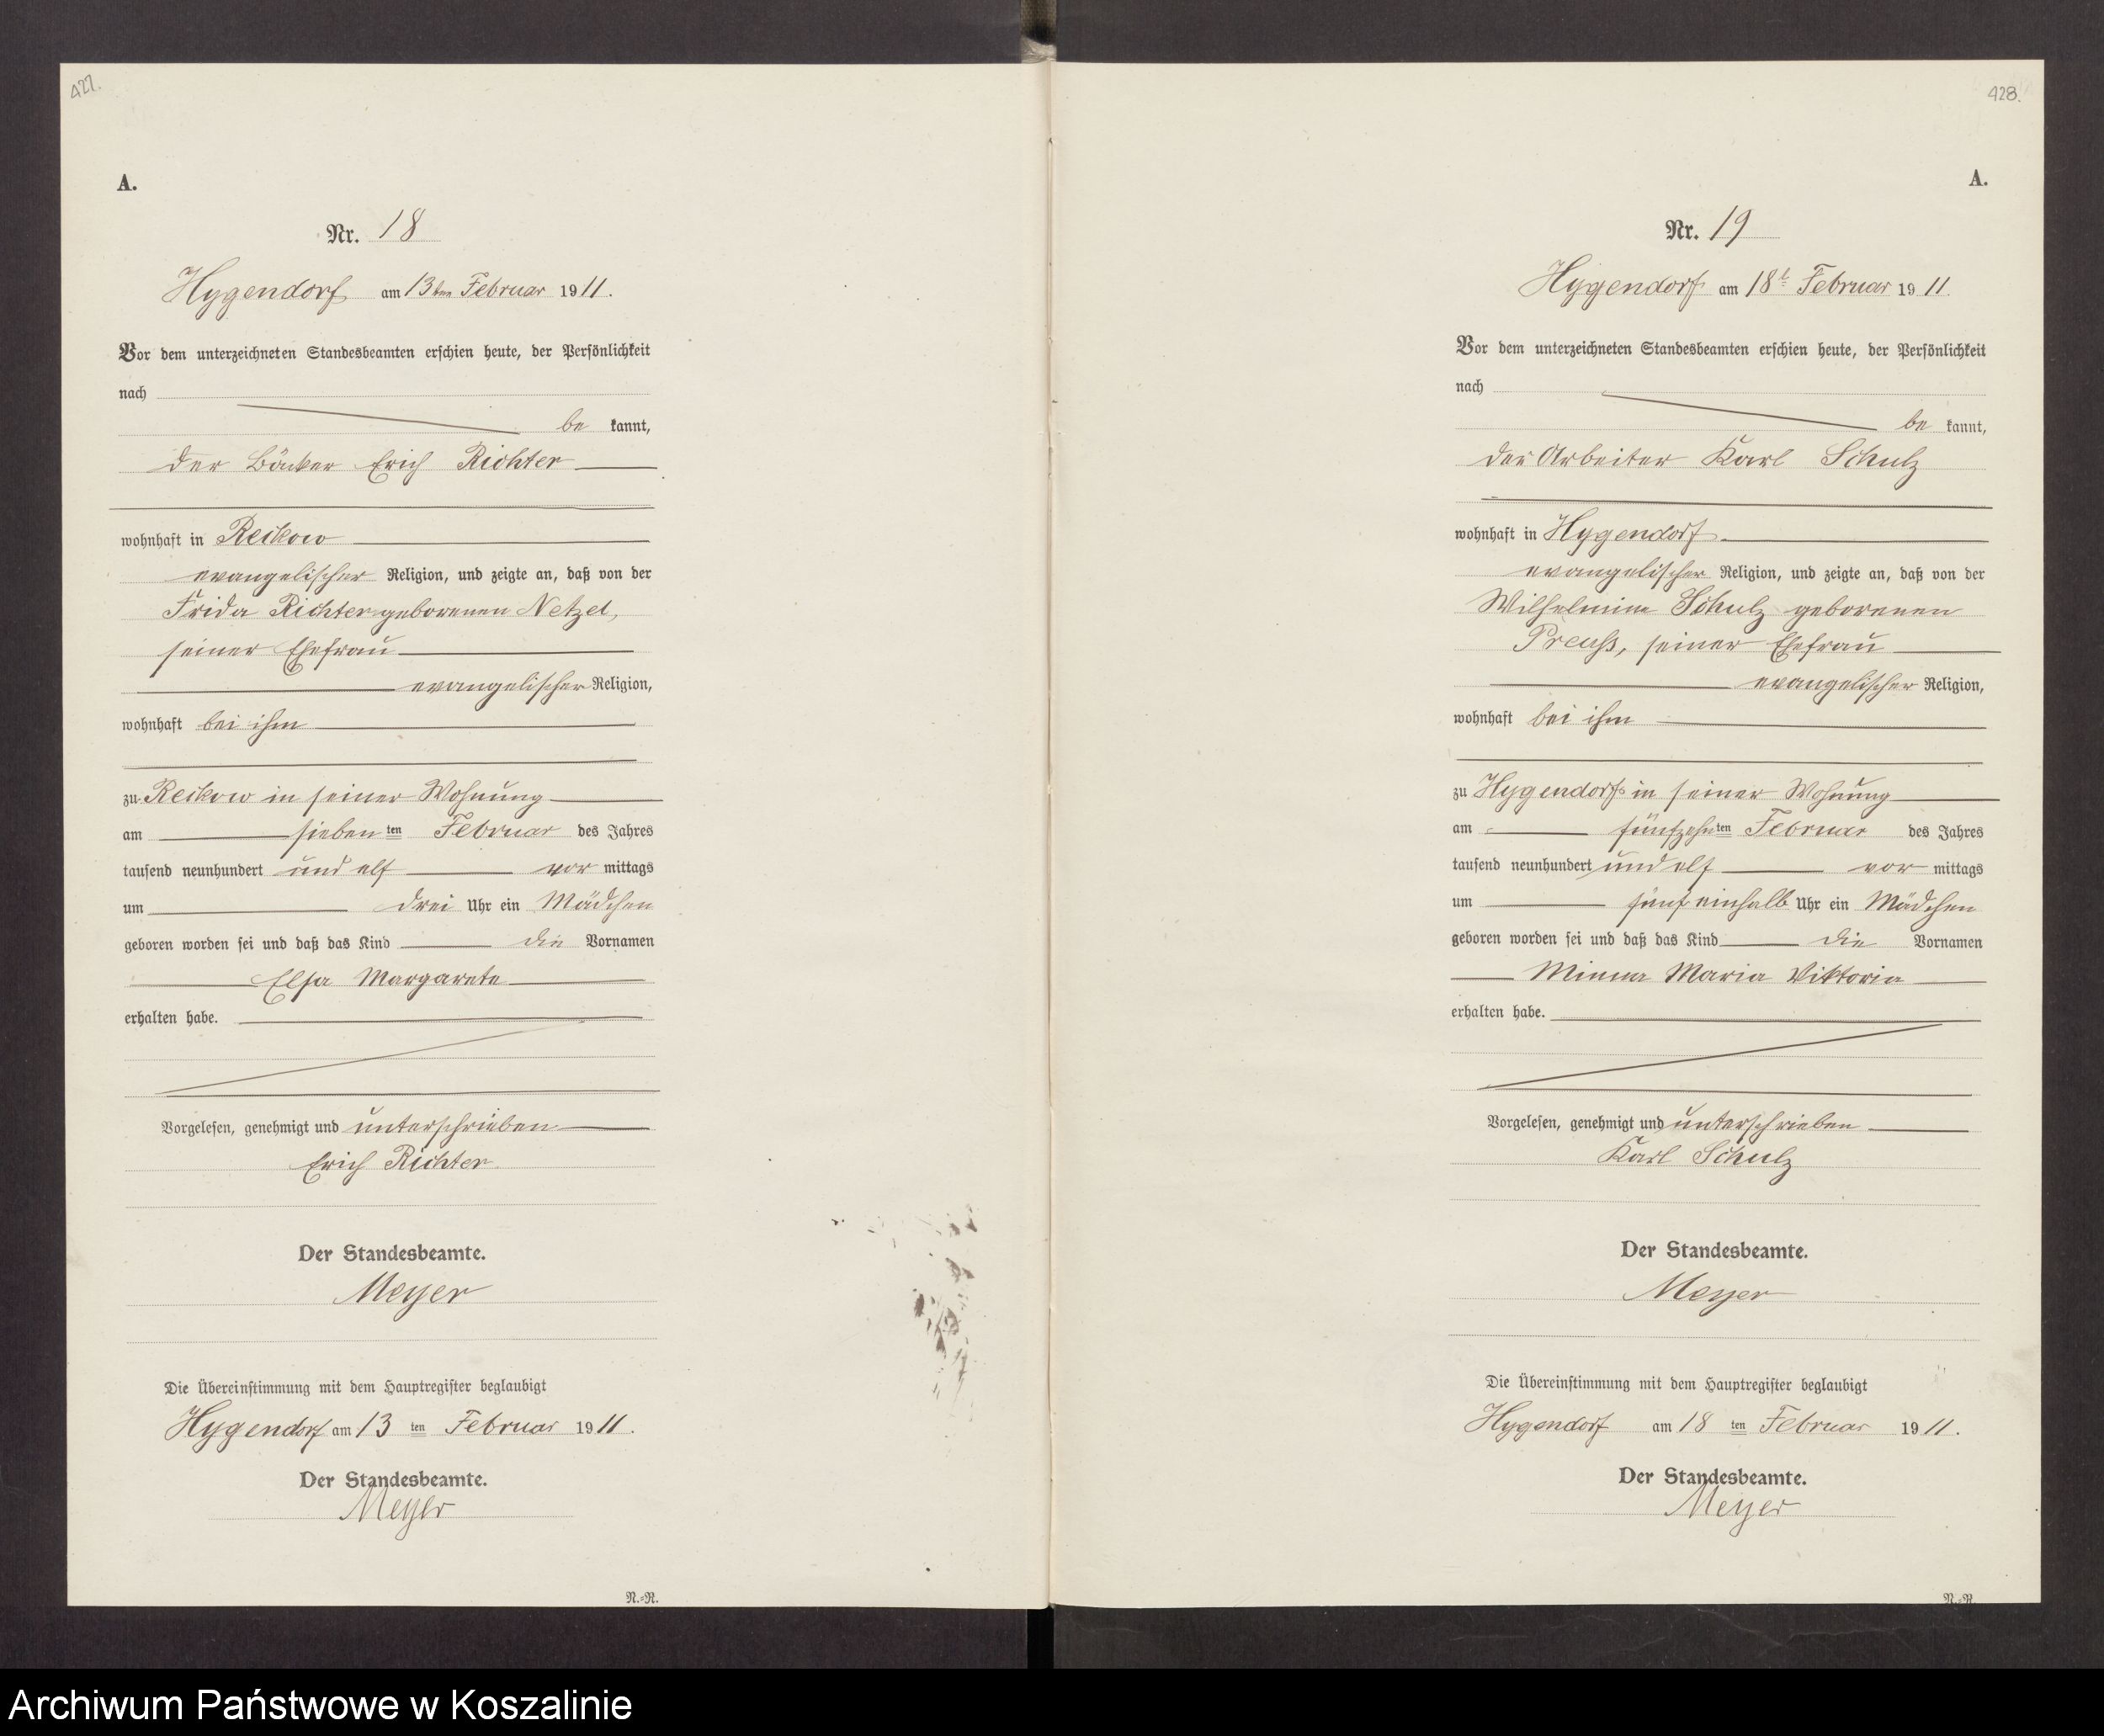 427.
A.
Nr. 18
Hygendorf am 13ten Februar 1911.
Vor dem unterzeichneten Standesbeamten erschien heute, der Persönlichkeit
nach
be kannt,
der Bäcker Erich Richter
wohnhaft in Reikow
evangelischer Religion, und zeigte an, daß von der
Frida Richter geborenen Netzel,
seiner Ehefrau
evangelischer Religion,
wohnhaft bei ihm
zu Reikow in seiner Wohnung
am sieben ten Februar des Jahres
tausend neunhundert und elf vor mittags
um drei Uhr ein Mädchen
geboren worden sei und daß das Kind die Vornamen
Elsa Margarete
erhalten habe.
Vorgelesen, genehmigt und unterschrieben
Erich Richter
Der Standesbeamte.
Meyer
Die Übereinstimmung mit dem Hauptregister beglaubigt
Hygendorf am 13 ten Februar 1911.
Der Standesbeamte.
Meyer
N.-R.
428.
A.
Nr. 19
Hygendorf am 18t Februar 1911.
Vor dem unterzeichneten Standesbeamten erschien heute, der Persönlichkeit
nach
be kannt,
der Arbeiter Karl Schulz
wohnhaft in Hygendorf
evangelischer Religion, und zeigte an, daß von der
Wilhelmine Schulz geborenen
Preuß, seiner Ehefrau
evangelischer Religion,
wohnhaft bei ihm
zu Hygendorf in seiner Wohnung
am fünfzehn ten Februar des Jahres
tausend neunhundert und elf vor mittags
um fünf einhalb Uhr ein Mädchen
geboren worden sei und daß das Kind die Vornamen
Minna Maria Viktoria
erhalten habe.
Vorgelesen, genehmigt und unterschrieben
Karl Schulz
Der Standesbeamte.
Meyer
Die Übereinstimmung mit dem Hauptregister beglaubigt
Hygendorf am 18 ten Februar 1911.
Der Standesbeamte.
Meyer
N.-R.
Archiwum Państwowe w Koszalinie